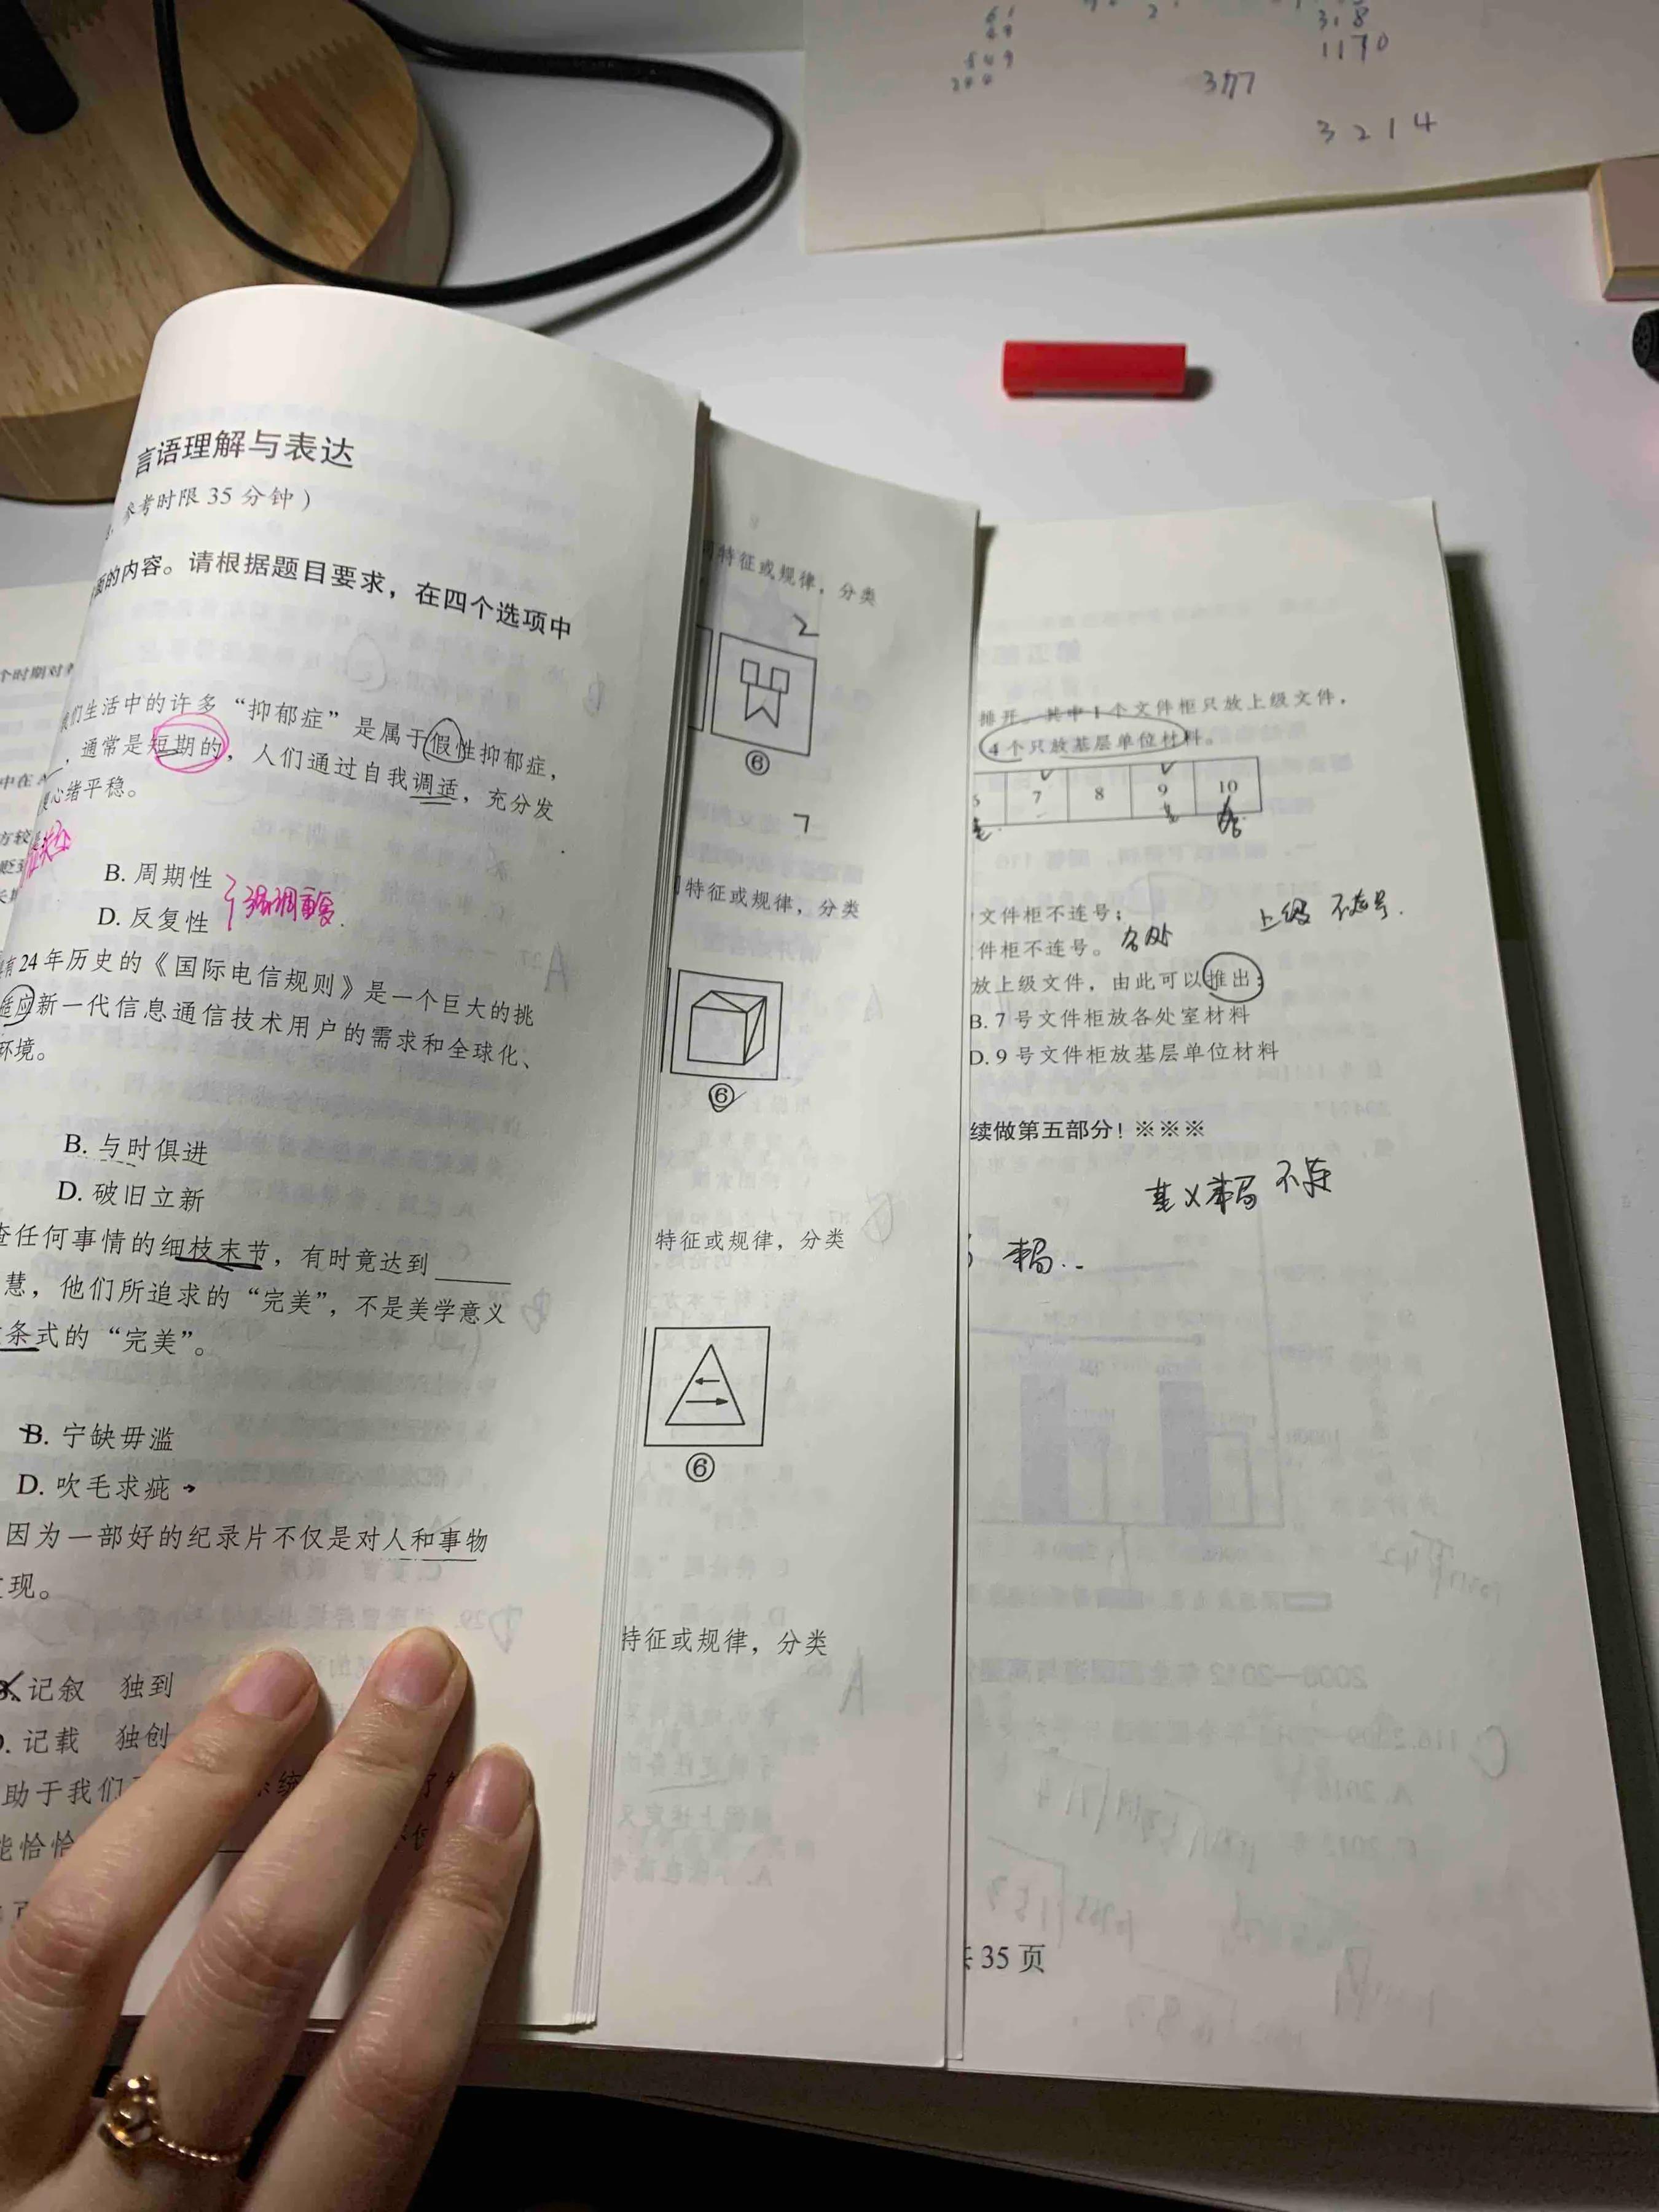 318
1170
377
3214
言语理解与表达
参考时限 35 分钟）
面的内容。请根据题目要求，在四个选项中
个时期对
我们生活中的许多“抑郁症”是属于假性抑郁症，
，通常是短期的，人们通过自我调适，充分发
心绪平稳。
B. 周期性
D. 反复性
强调重复.
有24年历史的《国际电信规则》是一个巨大的挑
适应新一代信息通信技术用户的需求和全球化、
环境。
B. 与时俱进
D. 破旧立新
查任何事情的细枝末节，有时竟达到______
慧，他们所追求的“完美”，不是美学意义
条式的“完美”。
B. 宁缺毋滥
D. 吹毛求疵
因为一部好的纪录片不仅是对人和事物
现。
记叙 独到
记载 独创
助于我们
能恰恰
特征或规律，分类
2
⑥
7
特征或规律，分类
⑥
特征或规律，分类
⑥
特征或规律，分类
排开。其中1个文件柜只放上级文件，
4个只放基层单位材料。
7 8 9 10
文件柜不连号；
上级 不连号.
件柜不连号。
各处
放上级文件，由此可以推出：
B. 7 号文件柜放各处室材料
D. 9 号文件柜放基层单位材料
续做第五部分！※※※
基 X 本局 不连
本局..
35 页